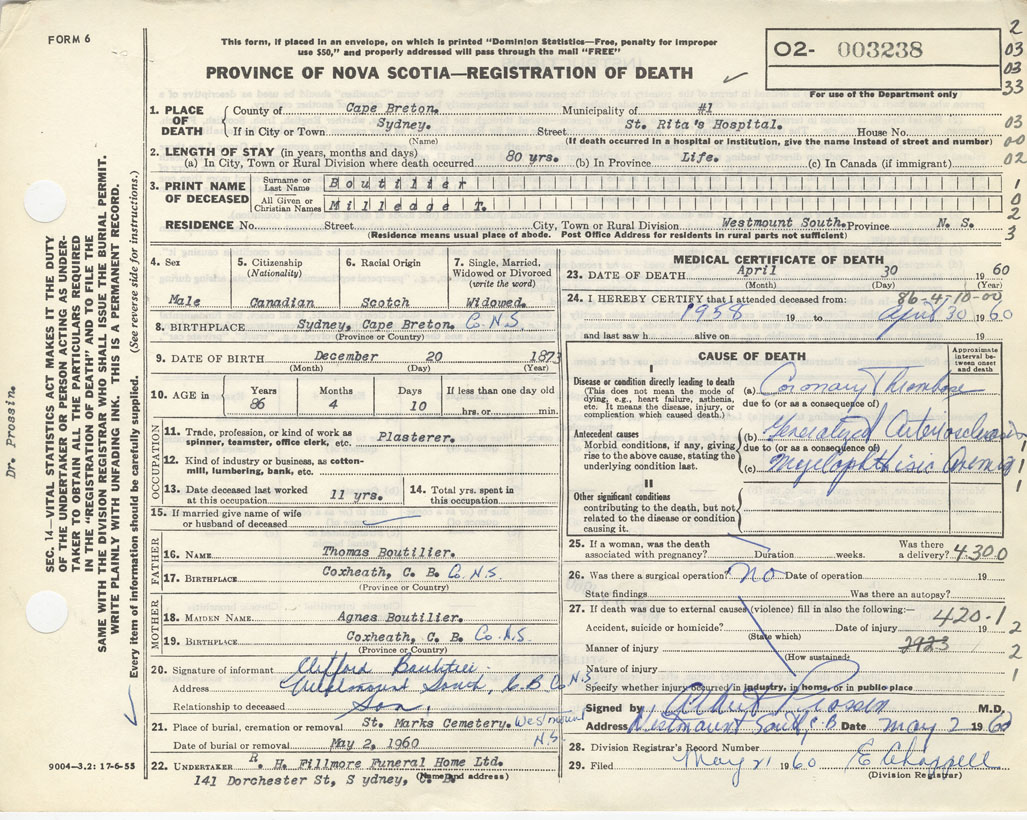 FORM 6
This form, if placed in an envelope, on which is printed "Dominion Statistics—Free, penalty for improper
use $50," and properly addressed will pass through the mail "FREE"
PROVINCE OF NOVA SCOTIA—REGISTRATION OF DEATH
02- 003238
For use of the Department only
2
03
03
33
03
00
02
1
0
2
3
1. PLACE OF DEATH
County of Cape Breton. Municipality of #1
If in City or Town Sydney. Street St. Rita's Hospital. House No.
(Name) (If death occurred in a hospital or institution, give the name instead of street and number)
2. LENGTH OF STAY (in years, months and days)
(a) In City, Town or Rural Division where death occurred 80 yrs. (b) In Province Life. (c) In Canada (if immigrant)
3. PRINT NAME OF DECEASED
Surname or Last Name Boutilier
All Given or Christian Names Milledge T.
RESIDENCE No. Street City, Town or Rural Division Westmount South. Province N. S.
(Residence means usual place of abode. Post Office Address for residents in rural parts not sufficient)
4. Sex
Male
5. Citizenship (Nationality)
Canadian
6. Racial Origin
Scotch
7. Single, Married, Widowed or Divorced (write the word)
Widowed.
8. BIRTHPLACE Sydney, Cape Breton. C. N.S
(Province or Country)
9. DATE OF BIRTH December 20 1873
(Month) (Day) (Year)
10. AGE in
Years 86
Months 4
Days 10
If less than one day old
hrs. or min.
OCCUPATION
11. Trade, profession, or kind of work as
spinner, teamster, office clerk, etc. Plasterer.
12. Kind of industry or business, as cotton-
mill, lumbering, bank, etc.
13. Date deceased last worked
at this occupation 11 yrs.
14. Total yrs. spent in
this occupation
15. If married give name of wife
or husband of deceased
FATHER
16. NAME Thomas Boutilier.
17. BIRTHPLACE Coxheath, C. B. Co. N.S
(Province or Country)
MOTHER
18. MAIDEN NAME Agnes Boutilier.
19. BIRTHPLACE Coxheath, C. B. Co. N.S
(Province or Country)
20. Signature of informant Clifford Boutilier
Address Westmount South, C.B Co N.S
Relationship to deceased Son.
21. Place of burial, cremation or removal St. Marks Cemetery. Westmount
N.S.
Date of burial or removal May 2, 1960
22. UNDERTAKER R. H. Fillmore Funeral Home Ltd.
(Name and address)
141 Dorchester St, S ydney,
MEDICAL CERTIFICATE OF DEATH
23. DATE OF DEATH April 30 1960
(Month) (Day) (Year)
86-4-10-00
24. I HEREBY CERTIFY that I attended deceased from:
1958 19 to April 30 1960
and last saw h alive on 19
CAUSE OF DEATH
Approximate interval between onset and death
I
Disease or condition directly leading to death
(This does not mean the mode of
dying, e.g., heart failure, asthenia,
etc. It means the disease, injury, or
complication which caused death.)
(a) Coronary Thrombosis
due to (or as a consequence of)
Antecedent causes
Morbid conditions, if any, giving
rise to the above cause, stating the
underlying condition last.
(b) Generalized Arteriosclerosis
due to (or as a consequence of)
(c) Myelophthisic Anemia
1
1
II
Other significant conditions
contributing to the death, but not
related to the disease or condition
causing it.
25. If a woman, was the death
associated with pregnancy? Duration weeks. Was there
a delivery? 4300
26. Was there a surgical operation? no Date of operation 19
State findings Was there an autopsy?
27. If death was due to external causes (violence) fill in also the following:—
420.1
Accident, suicide or homicide? Date of injury 19 2
(State which)
Manner of injury 2923 2
(How sustained)
Nature of injury 1
Specify whether injury occurred in industry, in home, or in public place
Signed by M.D.
Address Westmount South, C B Date May 2 1960
28. Division Registrar's Record Number
29. Filed May 21 1960 E Chappell
(Division Registrar)
SEC. 14—VITAL STATISTICS ACT MAKES IT THE DUTY
OF THE UNDERTAKER OR PERSON ACTING AS UNDER-
TAKER TO OBTAIN ALL THE PARTICULARS REQUIRED
IN THE "REGISTRATION OF DEATH" AND TO FILE THE
SAME WITH THE DIVISION REGISTRAR WHO SHALL ISSUE THE BURIAL PERMIT.
WRITE PLAINLY WITH UNFADING INK. THIS IS A PERMANENT RECORD.
Every item of information should be carefully supplied. (See reverse side for instructions.)
Dr. Prossin.
9004—3.2: 17-6-55